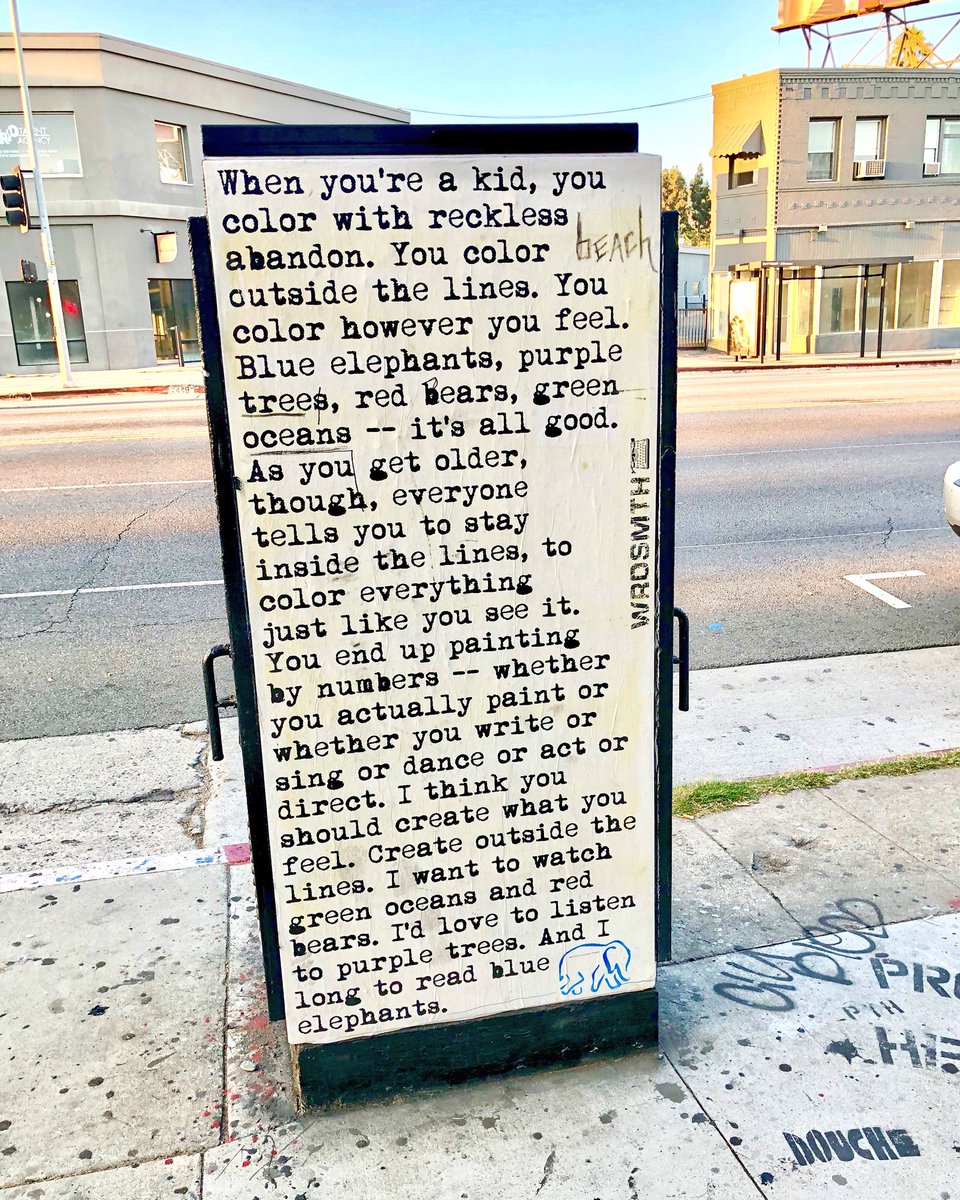 When you're a kid, you
color with reckless
abandon. You color
outside the lines. You
color however you feel.
Blue elephants, purple
trees, red bears, green
oceans -- it's all good.
As you get older,
though, everyone
tells you to stay
inside the lines, to
color everything
just like you see it.
You end up painting
by numbers -- whether
you actually paint or
whether you write or
sing or dance or act or
direct. I think you
should create what you
feel. Create outside the
lines. I want to watch
green oceans and red
bears. I'd love to listen
to purple trees. And I
long to read blue
elephants.
bEACH
WRDSMTH
TALENT
AGENCY
PR
PTH
HE
DOUCHE